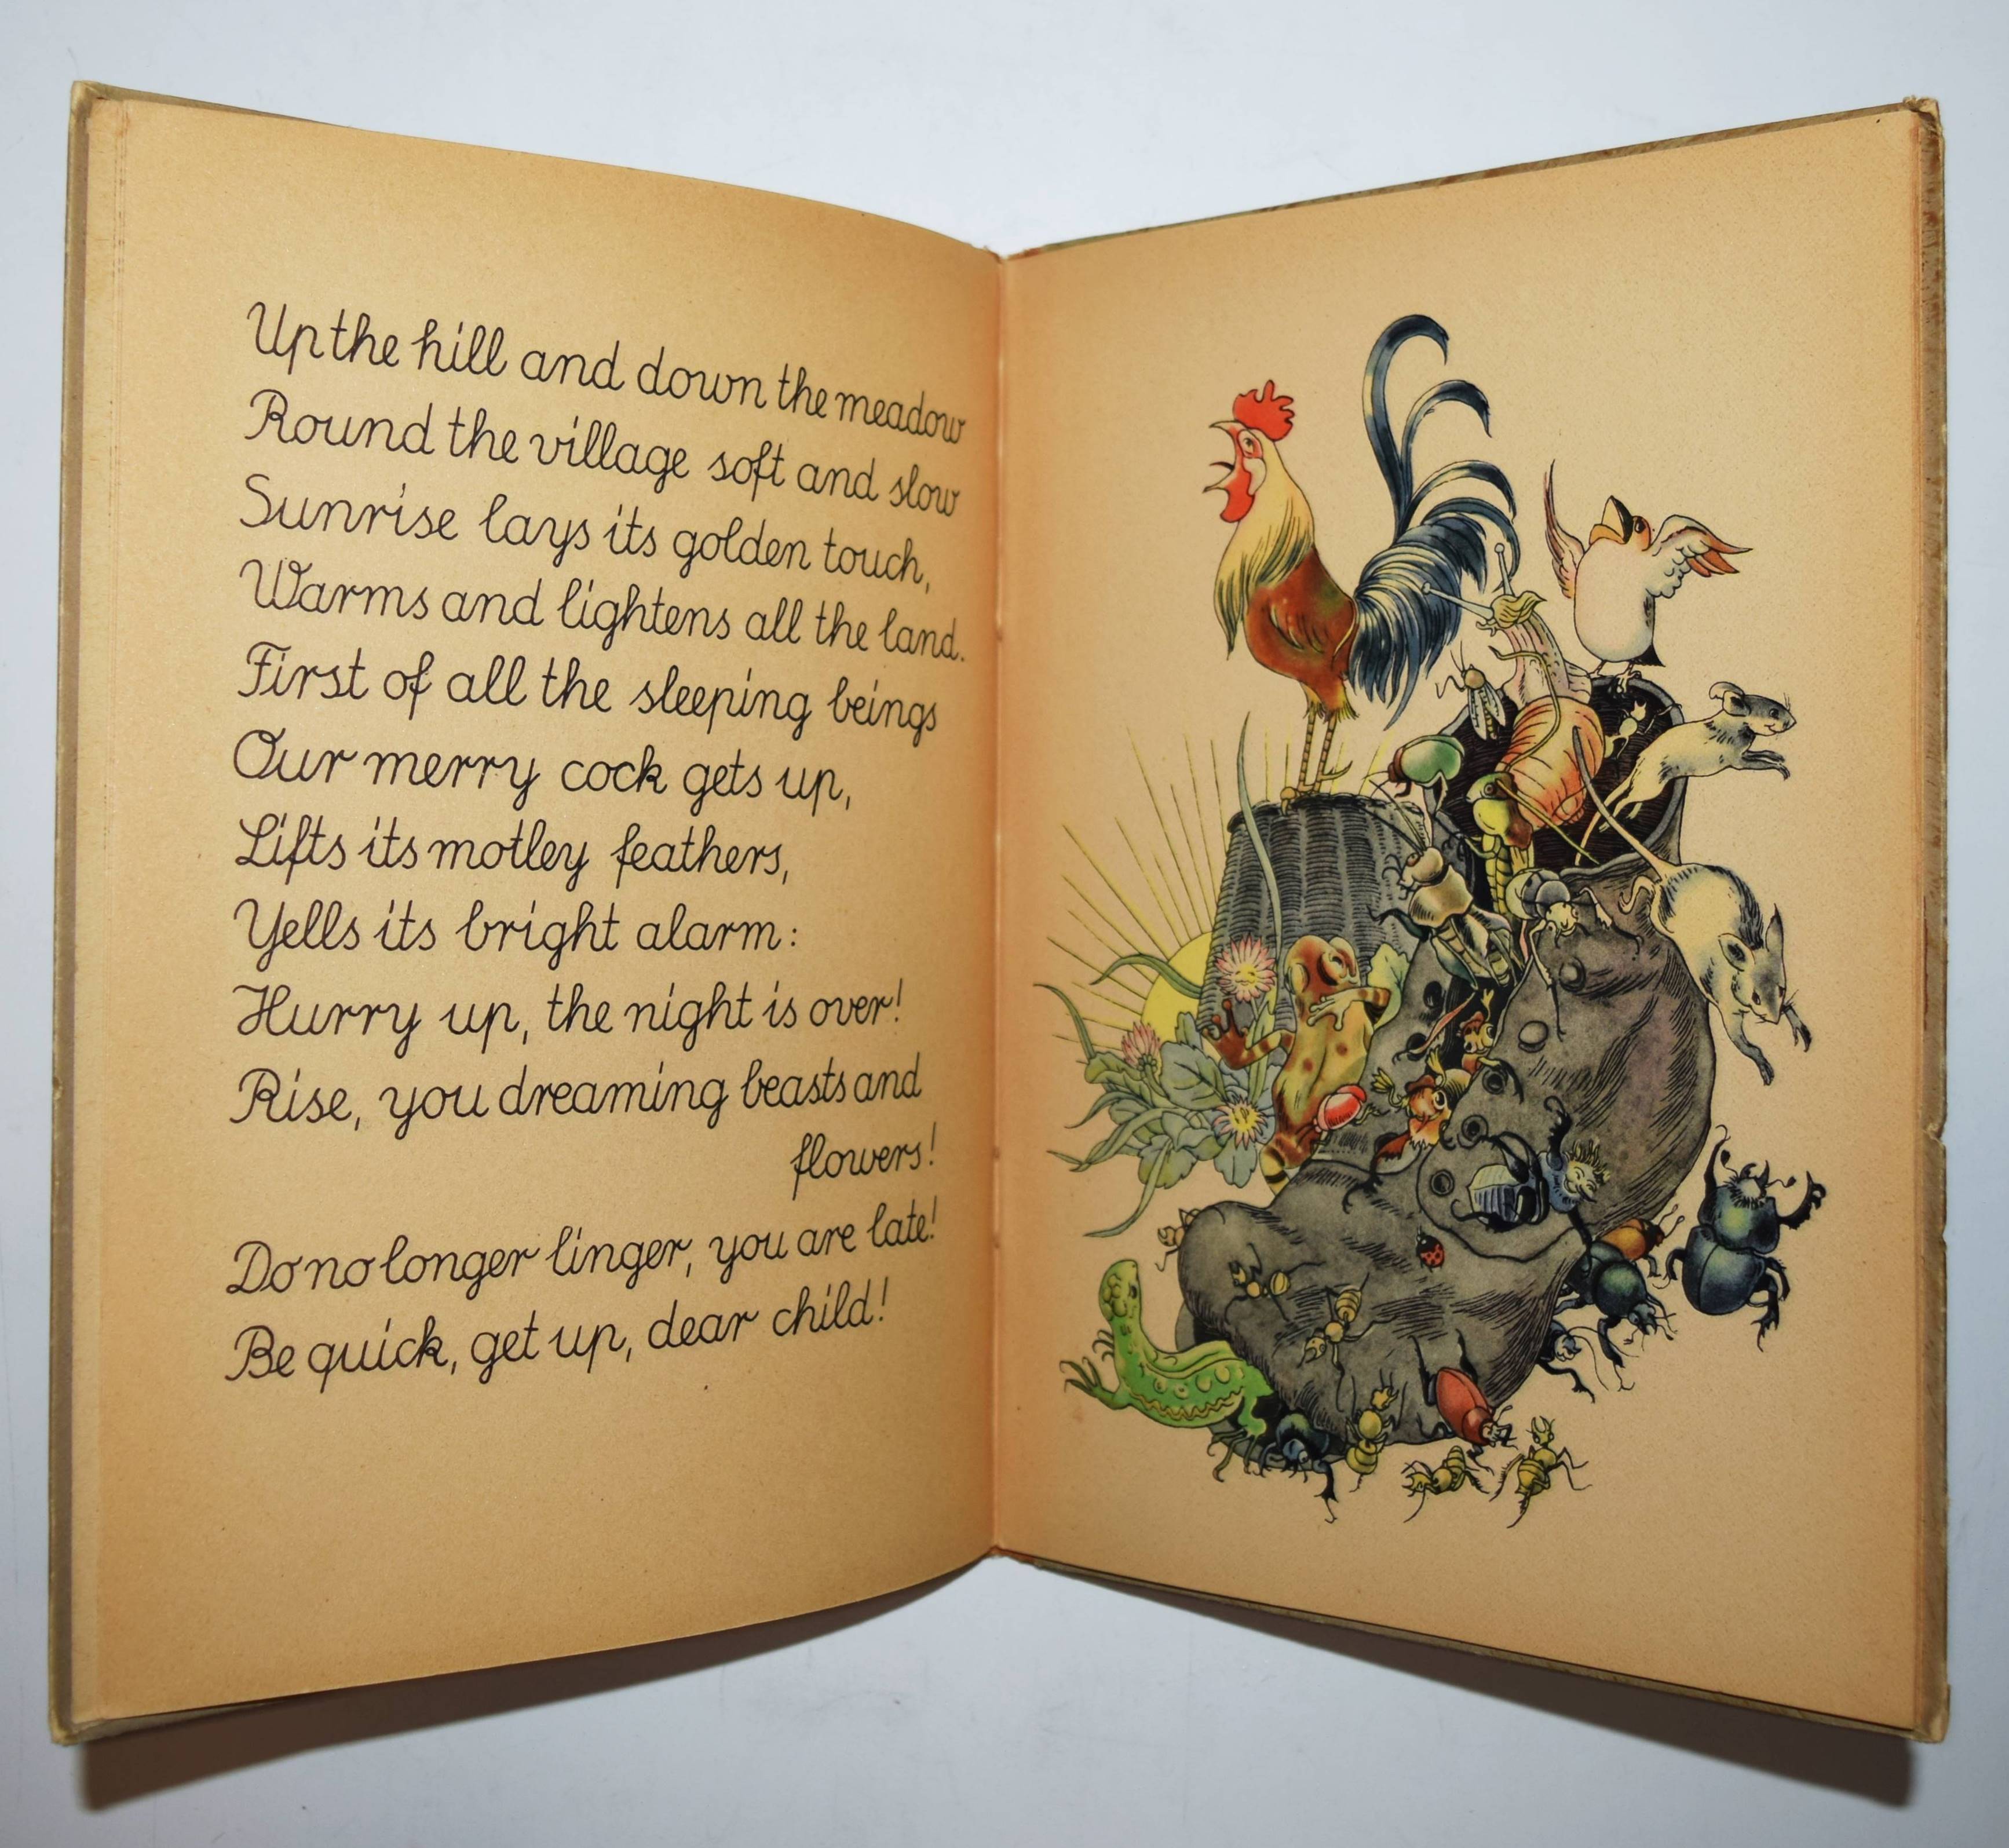 Up the hill and down the meadow
Round the village soft and slow
Sunrise lays its golden touch,
Warms and lightens all the land.
First of all the sleeping beings
Our merry cock gets up,
Lifts its motley feathers,
Yells its bright alarm:
Hurry up, the night is over!
Rise, you dreaming beasts and
flowers!
Do no longer linger, you are late!
Be quick, get up, dear child!